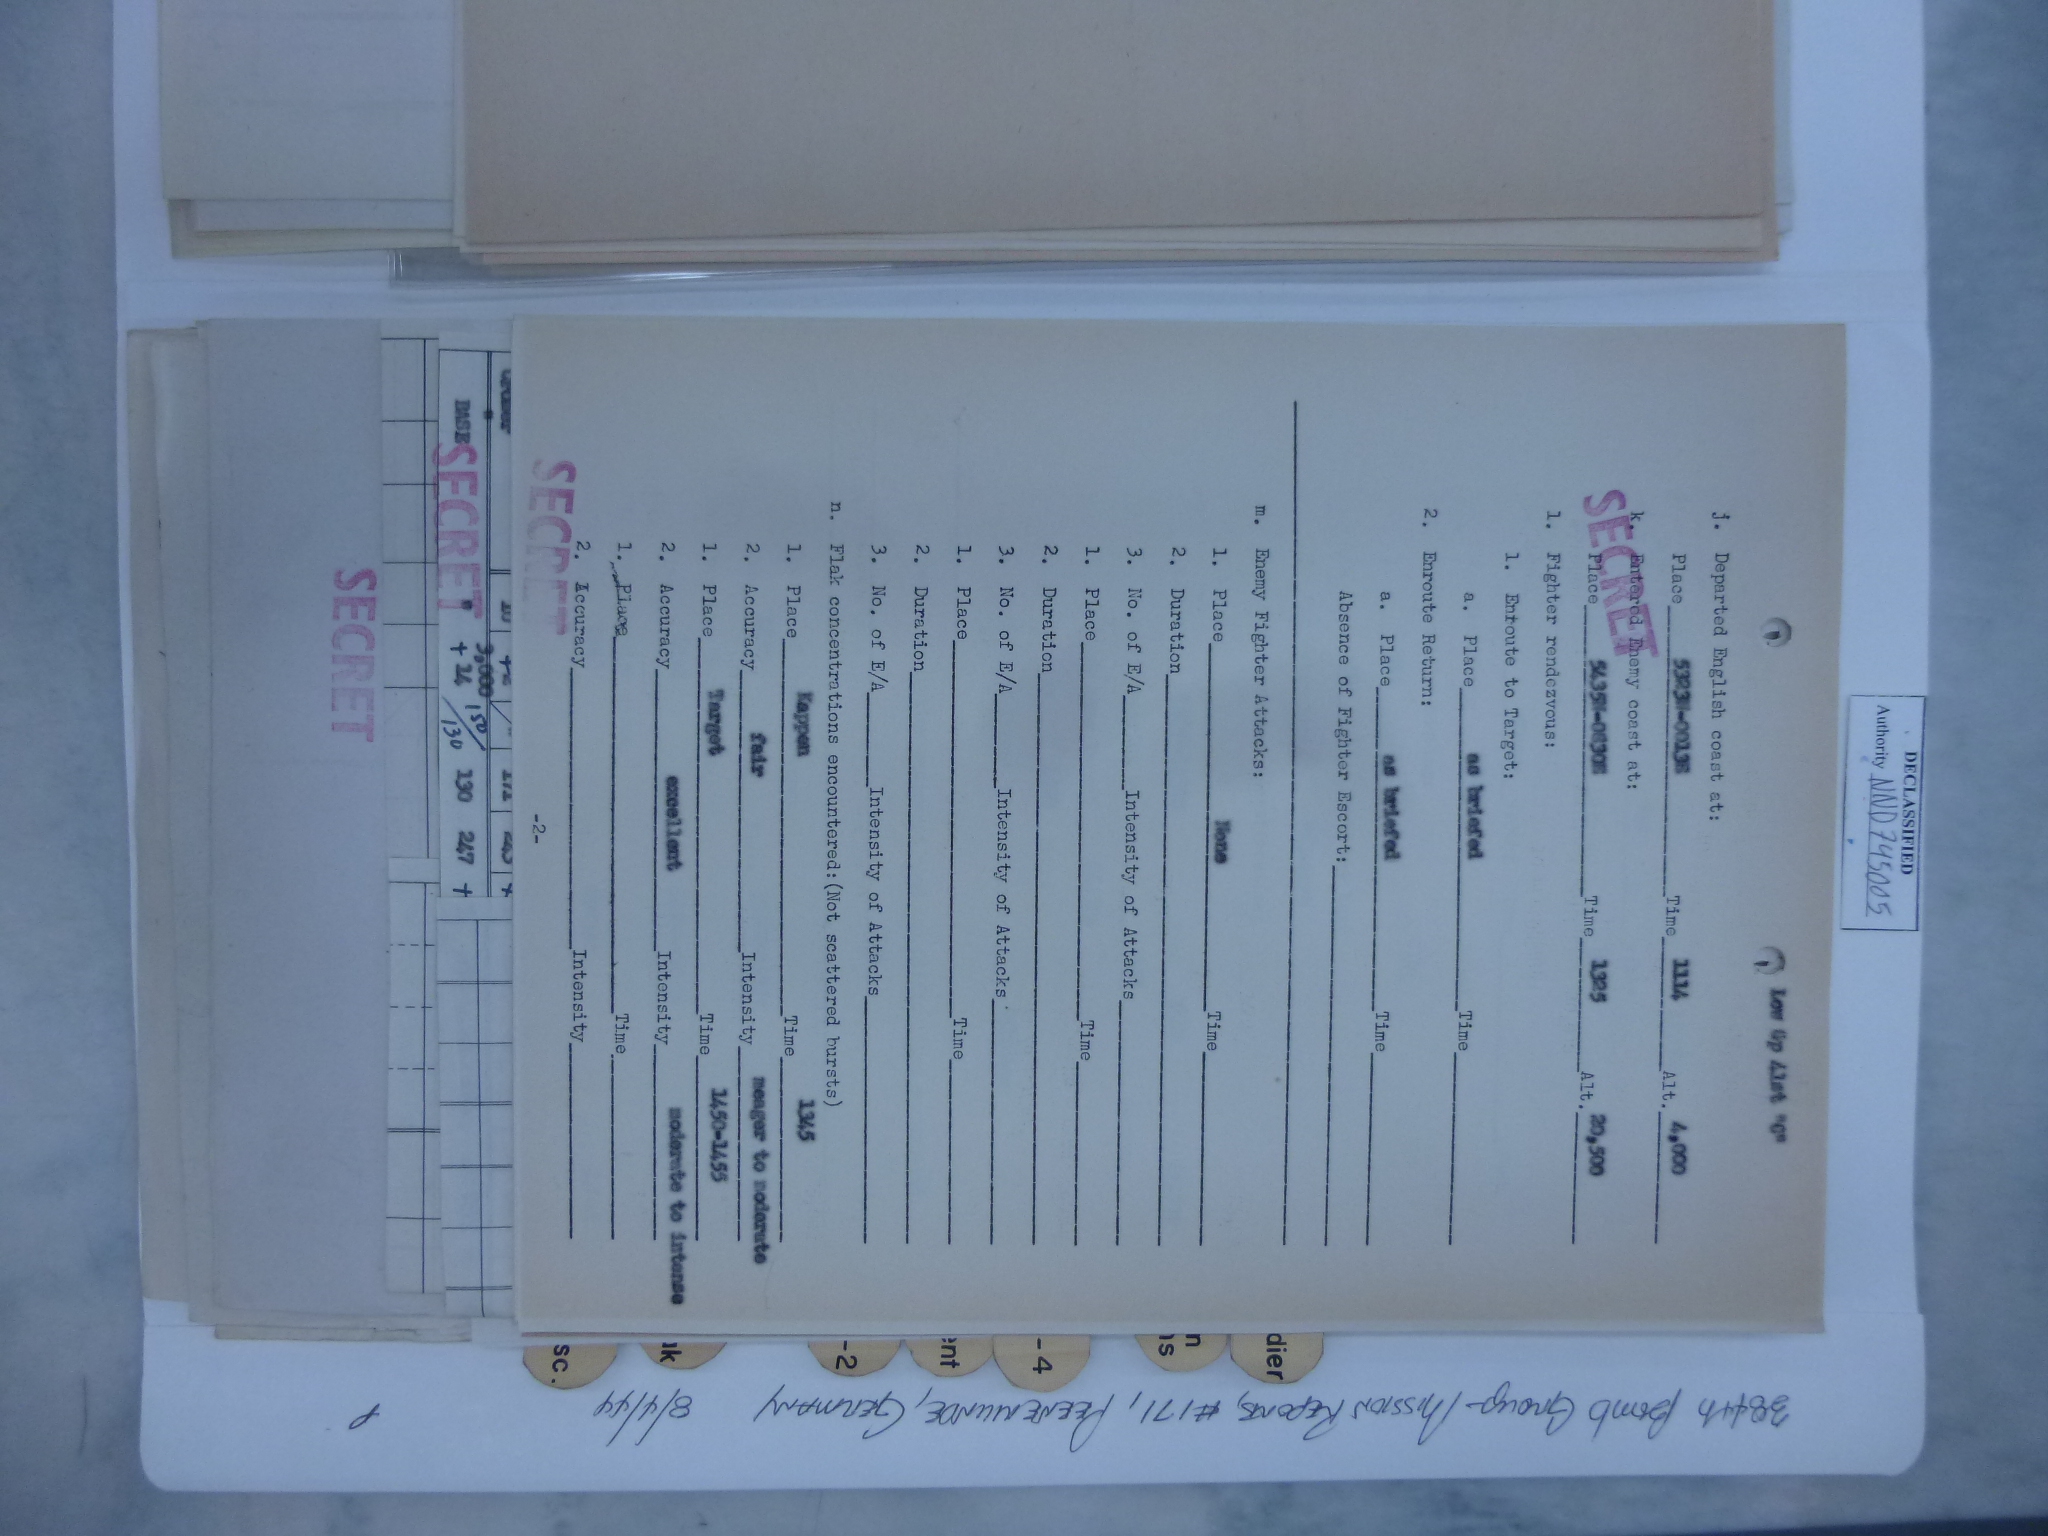 DECLASSIFIED
Authority NND 745005
Low Gp 41st "C"
j. Departed English coast at:
Place 5323N-0013E Time 1114 Alt. 4,000
k. Entered Enemy coast at:
SECRET
Place 5435N-0830E Time 1325 Alt. 20,500
l. Fighter rendezvous:
1. Enroute to Target:
a. Place as briefed Time
2. Enroute Return:
a. Place as briefed Time
Absence of Fighter Escort:
m. Enemy Fighter Attacks:
1. Place None Time
2. Duration
3. No. of E/A Intensity of Attacks
1. Place Time
2. Duration
3. No. of E/A Intensity of Attacks
1. Place Time
2. Duration
3. No. of E/A Intensity of Attacks
n. Flak concentrations encountered:(Not scattered bursts)
1. Place Kappen Time 1345
2. Accuracy fair Intensity meager to moderate
1. Place Target Time 1450-1455
2. Accuracy excellent Intensity moderate to intense
1. Place Time
2. Accuracy Intensity
SECRET
-2-
BASE " 3,000 150/130 130 247 +
+ 24
SECRET
SECRET
dier
n
ns
-4
ent
-2
ak
sc.
384th Bomb Group - Mission Reports, #171, PEENEMUNDE, GERMANY 8/4/44